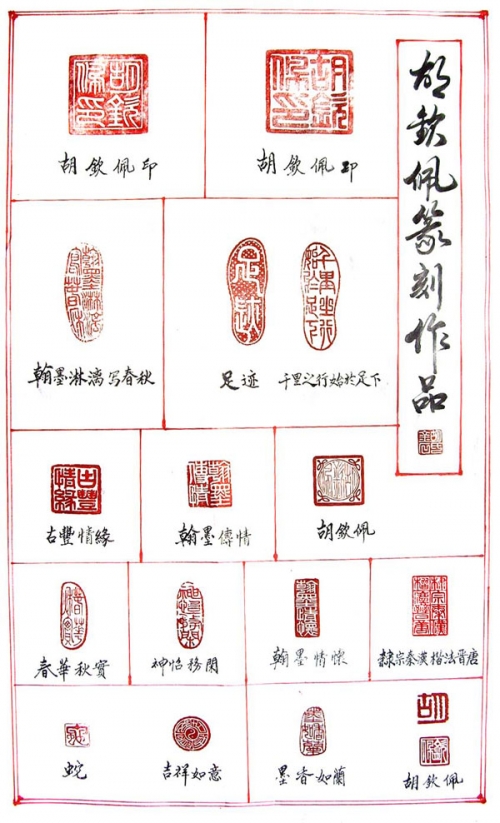 胡欽佩篆刻作品
胡欽佩印
胡欽佩印
翰墨淋漓写春秋
足迹
千里之行始於足下
古豐情緣
翰墨傳情
胡欽佩
春華秋實
神怡務閑
翰墨情懷
隸宗秦漢楷法晋唐
蛇
吉祥如意
墨香如蘭
胡欽佩